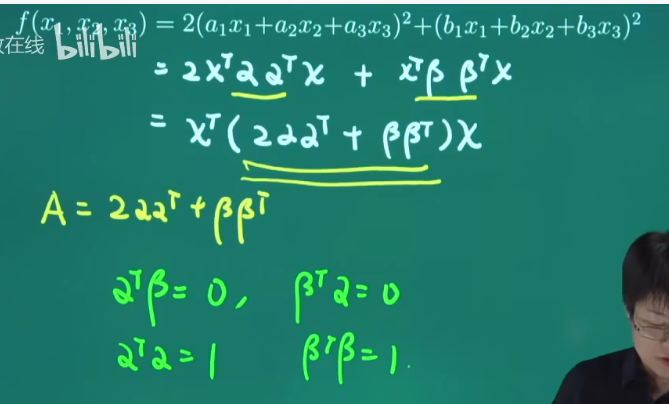 f(x₁, x₂, x₃) = 2(a₁x₁+a₂x₂+a₃x₃)²+(b₁x₁+b₂x₂+b₃x₃)²
在线 bilibili
= 2xᵀααᵀx + xᵀββᵀx
= xᵀ(2ααᵀ + ββᵀ)x
A = 2ααᵀ + ββᵀ
αᵀβ = 0, βᵀα = 0
αᵀα = 1 βᵀβ = 1.